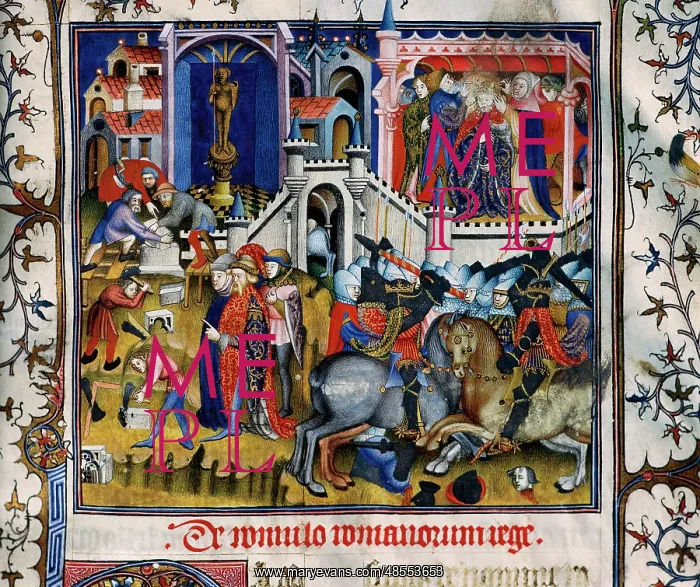 ME
PL
ME
PL
. De romulo romanorum rege .
www.maryevans.com/48553653